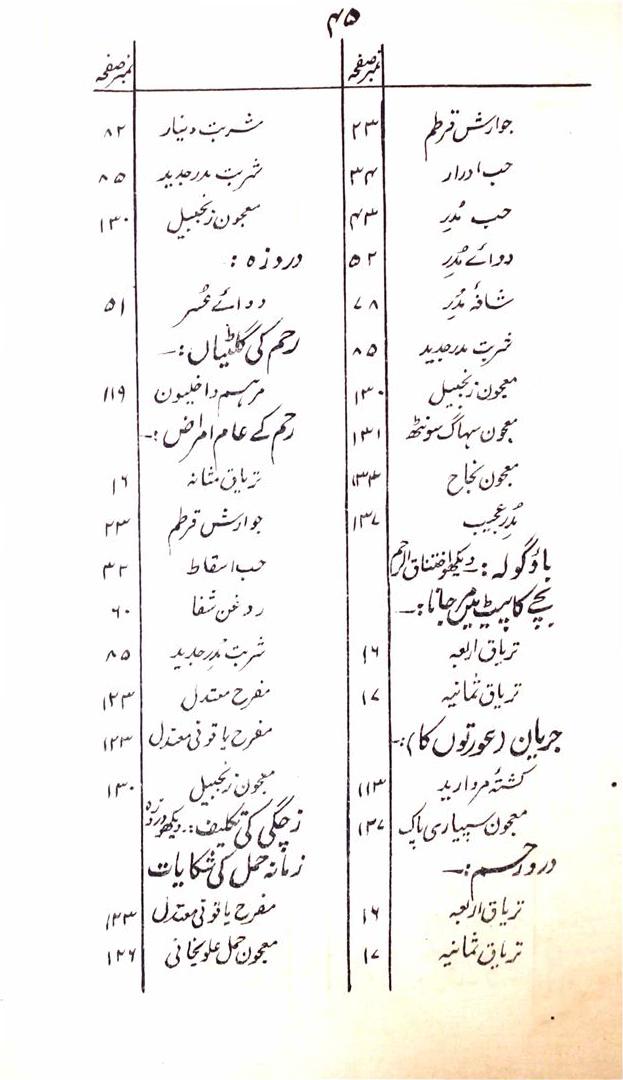 ۴۵
نمبر صفحہ
جوارش قرطم ۲۳
حب ادرار ۳۴
حب مُدِر ۴۳
دوائے مُدِر ۵۲
شافۂ مُدِر ۷۸
شربت مدر جدید ۸۵
معجون زنجبیل ۱۳۰
معجون سہاگ سونٹھ ۱۳۱
معجون نجاح ۱۳۳
مُدرِ عجیب ۱۳۷
باؤگولہ :۔ دیکھو اختناق الرحم
بچے کا پیٹ میں مر جانا :۔
تریاق اربعہ ۱۶
تریاق ثمانیہ ۱۷
جریان (عورتوں کا) :۔
کشتۂ مروارید ۱۱۳
معجون سپیاری پاک ۱۳۷
درد رحم :۔
تریاق اربعہ ۱۶
تریاق ثمانیہ ۱۷
نمبر صفحہ
شربت دینار ۸۲
شربت مدر جدید ۸۵
معجون زنجبیل ۱۳۰
درد زہ :
دوائے عُسر ۵۱
رحم کی گلٹیاں :۔
مرہم داخلیون ۱۱۹
رحم کے عام امراض :۔
تریاق مثانہ ۱۶
جوارش قرطم ۲۳
حب اسقاط ۳۲
روغن شفا ۶۰
شربت مُدرِ جدید ۸۵
مفرح معتدل ۱۲۳
مفرح یاقوتی معتدل ۱۲۳
معجون زنجبیل ۱۳۰
زچگی کی تکلیف :۔ دیکھو درد زہ
زمانہ حمل کی شکایات
مفرح یاقوتی معتدل ۱۲۳
معجون حمل علویخانی ۱۲۶